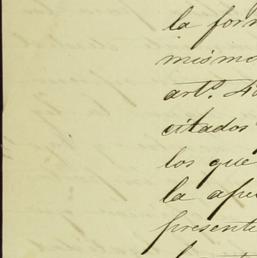 la for
mismo
art.º
citados
los que
la ape
presente